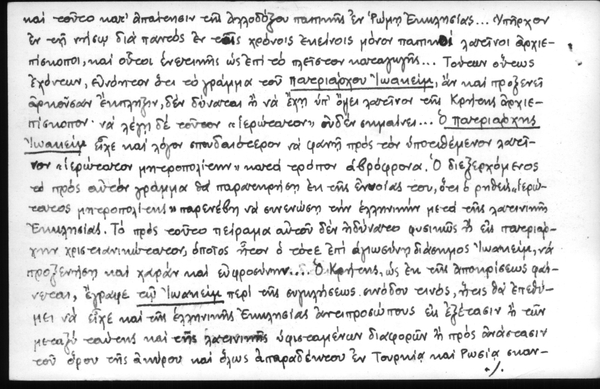 καὶ τοῦτο κατ' ἀπαίτησιν τῆς ἀλλοδόξου παπικῆς ἐν Ῥώμῃ Ἐκκλησίας... Ὑπῆρχον
ἐν τῇ νήσῳ διὰ παντὸς ἐν τοῖς χρόνοις ἐκείνοις μόνον παπικοὶ λατῖνοι ἀρχιε-
πίσκοποι, καὶ οὗτοι ἐνετικῆς ὡς ἐπὶ τὸ πλεῖστον καταγωγῆς... Τούτων οὕτως
ἐχόντων, εὐνόητον ὅτι τὸ γράμμα τοῦ πατριάρχου Ἰωακεὶμ, ἂν καὶ προξενεῖ
ἀρκοῦσαν ἔκπληξιν, δὲν δύναται ἢ νὰ ἔχῃ ὑπ' ὄψει λατῖνον τῆς Κρήτης ἀρχιε-
πίσκοπον· νὰ λέγῃ δὲ τοῦτον «ἱερώτατον» οὐδὲν σημαίνει... Ὁ πατριάρχης
Ἰωακεὶμ εἶχε καὶ λόγον σπουδαιότερον νὰ φανῇ πρὸς τὸν ὑποτιθέμενον λατῖ-
νον «ἱερώτατον μητροπολίτην» κατὰ τρόπον ἁβρόφρονα. Ὁ διεξερχόμενος
τὸ πρὸς αὐτὸν γράμμα θὰ παρατηρήσῃ ἐκ τῆς ἐννοίας του, ὅτι ὁ ῥηθεὶς «ἱερώ-
τατος μητροπολίτης» παρενέβη νὰ συνενώσῃ τὴν ἑλληνικὴν μετὰ τῆς λατινικῆς
Ἐκκλησίας. Τὸ πρὸς τοῦτο πείραμα αὐτοῦ δὲν ἠδύνατο φυσικῶς ἢ εἰς πατριάρ-
χην χριστιανικώτατον, ὁποῖος ἦτον ὁ τότε ἐπὶ ἁγιωσύνῃ διάσημος Ἰωακεὶμ, νὰ
προξενήσῃ καὶ χαρὰν καὶ εὐφροσύνην.... Ὁ Κρήτης, ὡς ἐκ τῆς ἀποκρίσεως φαί-
νεται, ἔγραψε τῷ Ἰωακεὶμ περὶ τῆς συγκλήσεως συνόδου τινός, ἥτις θὰ ἐπεθύ-
μει νὰ εἶχε καὶ τῆς ἑλληνικῆς Ἐκκλησίας ἀντιπροσώπους εἰς ἐξέτασιν ἢ τῶν
μεταξὺ ταύτης καὶ τῆς λατινικῆς ὑφισταμένων διαφορῶν ἢ πρὸς ἀνάστασιν
τοῦ ὅρου τῆς ἀκύρου καὶ ὅλως ἀπαραδέκτου ἐν Τουρκίᾳ καὶ Ρωσίᾳ σκαν-
./.